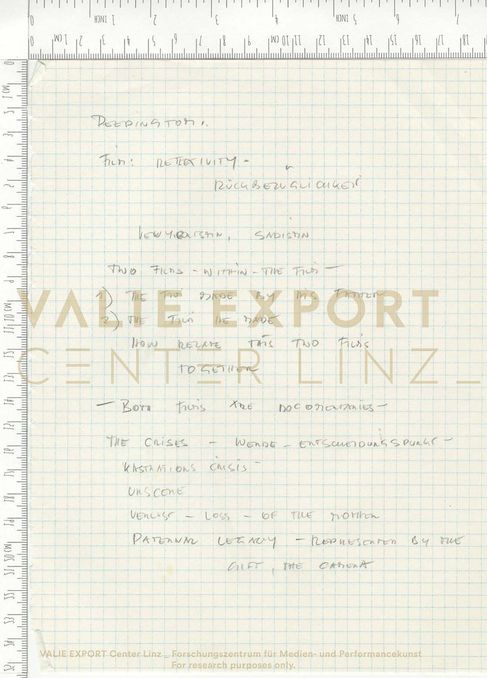 PEEPING TOM.
FILM: REFLEXIVITY -
RÜCKBEZÜGLICHKEIT
VOYEURISM, SADISM
TWO FILMS - WITHIN - THE FILM -
1) THE FILM MADE BY HIS FATHER
2) THE FILM HE MADE
HOW RELATE THIS TWO FILMS
TOGETHER
- BOTH FILMS ARE DOCUMENTARIES -
THE CRISES - WENDE - ENTSCHEIDUNGSPUNKT -
KASTRATIONS CRISIS -
URSCENE
VERLUST - LOSS - OF THE MOTHER
PATERNAL LEGACY - REPRESENTED BY THE
GIFT, THE CAMERA
VALIE EXPORT
CENTER LINZ_
VALIE EXPORT Center Linz_ Forschungszentrum für Medien- und Performancekunst
For research purposes only.